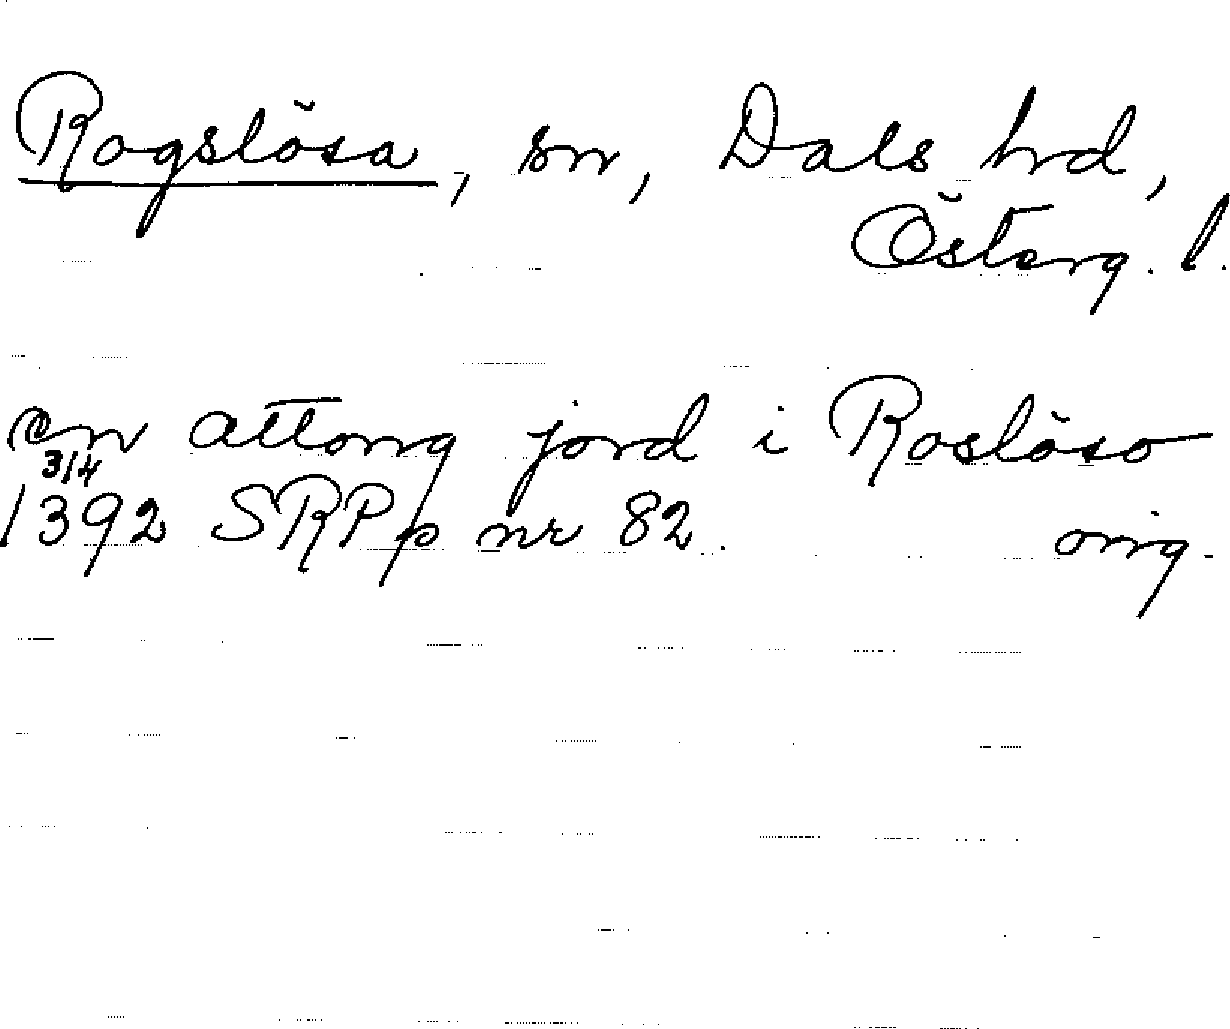 Rogslösa, sn, Dals hd,
Österg. l.
en attong jord i Roslöso
3/4
1392 SRPp nr 82. orig.